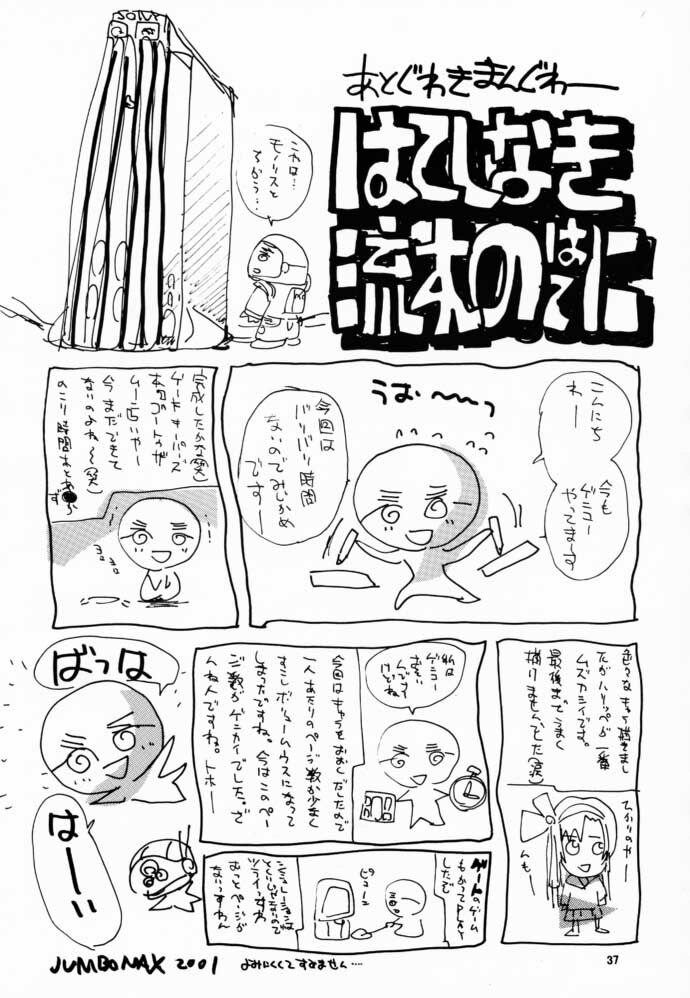 あとぐわきまんぐわー
はてしなき
流木のはてに
これは…
モノリスと
ちがう…
こんにち
わー
今も
ゲミュー
やってまーす
うおー〜っ
今回は
バリバリ時間
ないのでみじかめ
ですー
完成したかな(笑)
ゲートキーパーズ
今まだできて
ないのよね〜(笑)
のこり時間あと
ヨロヨロ
色々なキャラ描きまし
たがハリッペが一番
ムズカシイです。
最後までうまく
描けませんでした(涙)
私は
ゲミュー
おそい
んですけどね
今回はキャラをおおくだしたので
一人あたりのページ数が少なく
すこしボリュームウスになって
しまったですね。今はこのペー
ジ数がゲンカイでした。ざ
んねんですね。トホー
ばっは
はーい
ゲートのゲーム
もかってPLAY
しただ
ピコーン
シミュレーションは
ツライっすわ
もっとページが
ないっすわん
JUMBOMAX 2001
よみにくくてすみません…
37